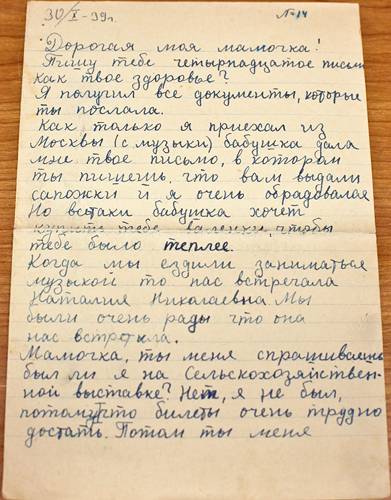 30/X-39г. №14
Дорогая моя мамочка!
Пишу тебе четырнадцатое письмо
Как твое здоровье?
Я получил все документы, которые
ты послала.
Как только я приехал из
Москвы (с музыки) бабушка дала
мне твое письмо, в котором
ты пишешь, что вам выдали
сапожки и я очень обрадовался
Но всетаки бабушка хочет
купить тебе валенки, чтобы
тебе было теплее.
Когда мы ездили заниматься
музыкой то нас встречала
Наталия Николаевна Мы
были очень рады что она
нас встретила.
Мамочка, ты меня спрашиваешь
был ли я на Сельскохозяйствен-
ной выставке? Нет, я не был,
потому что билеты очень трудно
достать. Потом ты меня